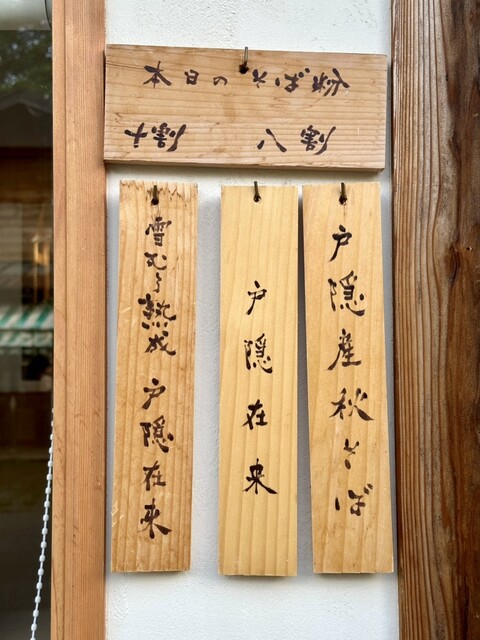 本日のそば粉
十割 八割
戸隠産秋そば
戸隠在来
雪むろ熟成 戸隠在来